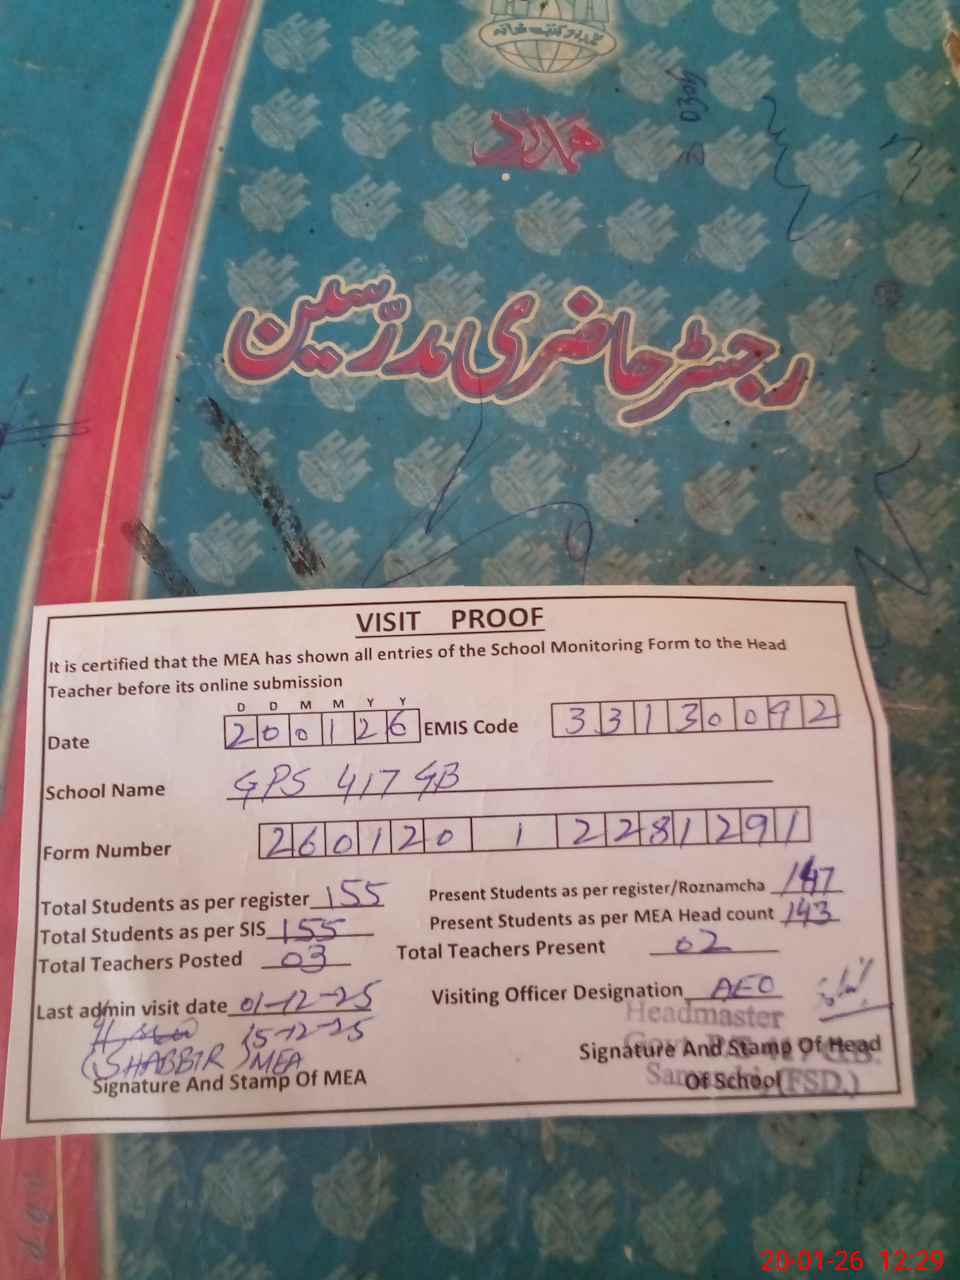 ہمدرد کتب خانہ
ہمدرد
رجسٹر حاضری مدرسین
VISIT PROOF
It is certified that the MEA has shown all entries of the School Monitoring Form to the Head
Teacher before its online submission
D D M M Y Y
Date 200126 EMIS Code 33130092
School Name GPS 417 GB
Form Number 260120 1 2281291
Total Students as per register 155 Present Students as per register/Roznamcha 147
Total Students as per SIS 155 Present Students as per MEA Head count 143
Total Teachers Posted 03 Total Teachers Present 02
Last admin visit date 01-12-25 Visiting Officer Designation AEO
15-12-25
(SHABBIR) MEA
Headmaster
Signature And Stamp Of MEA Signature And Stamp Of Head
Of School
(FSD.)
20-01-26 12:29